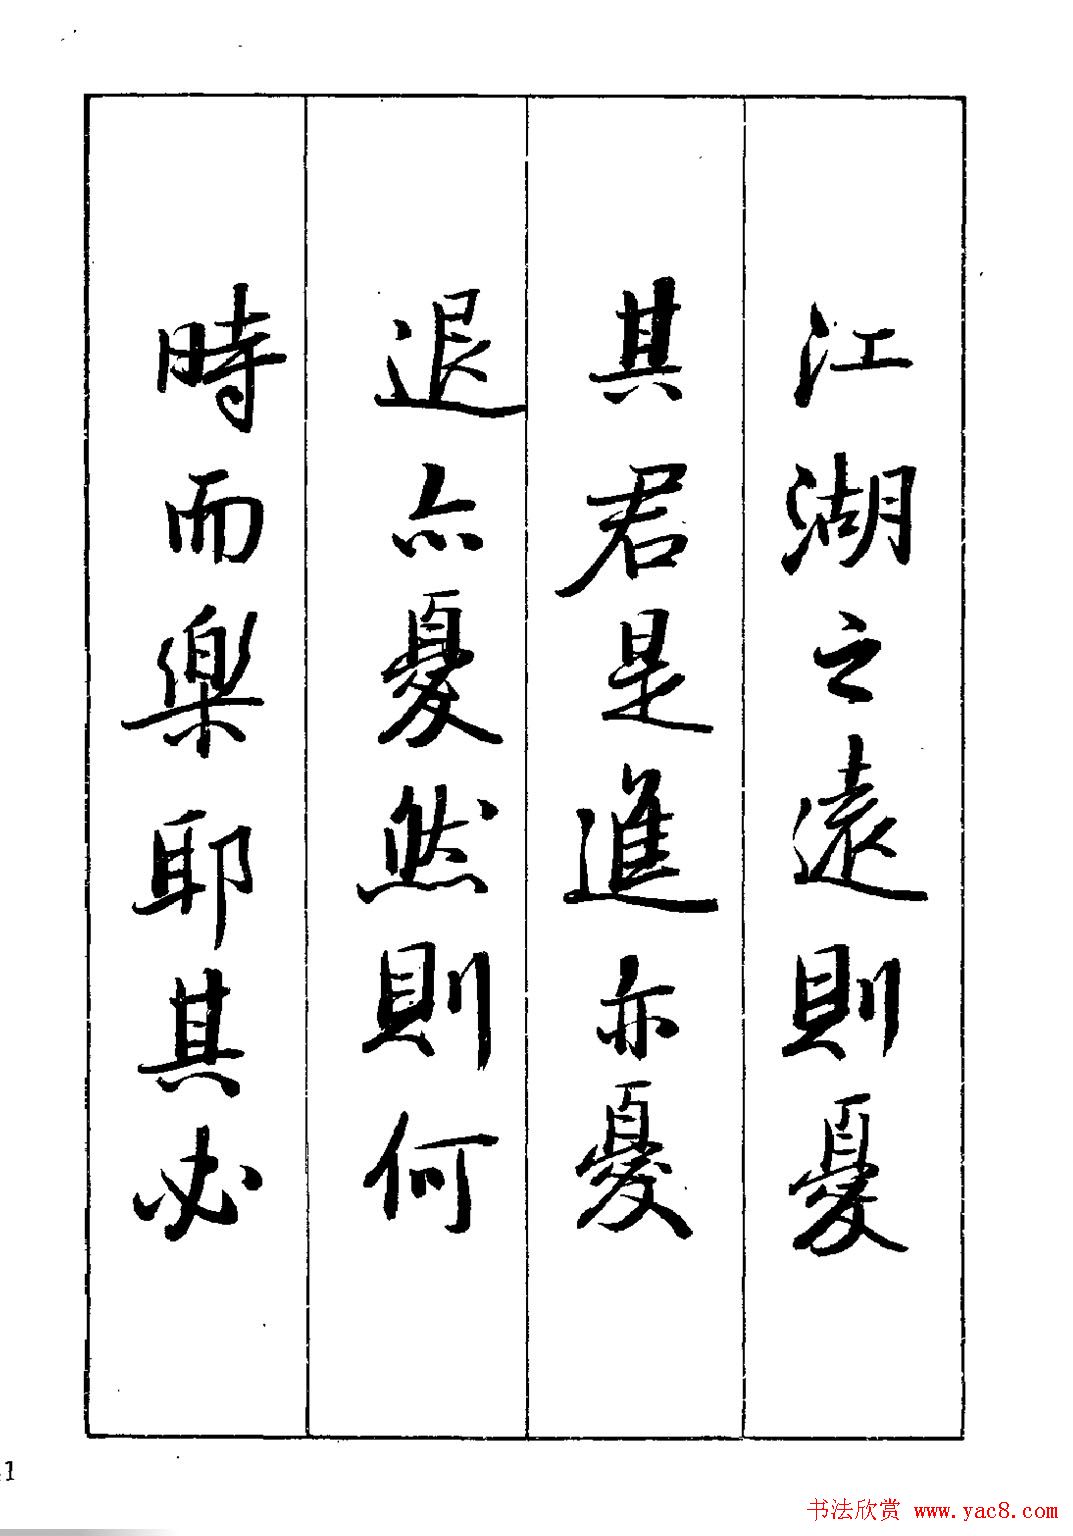 江湖之遠則憂
其君是進亦憂
退亦憂然則何
時而樂耶其必
1
书法欣赏 www.yac8.com